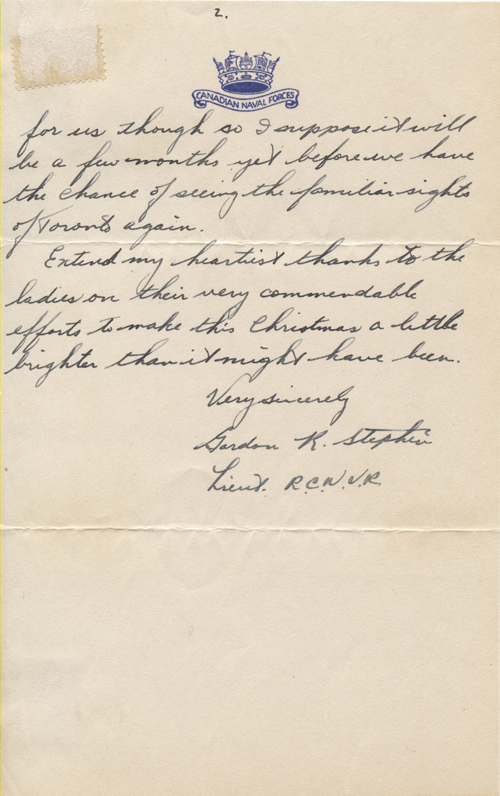 2.
CANADIAN NAVAL FORCES
for us though so I suppose it will
be a few months yet before we have
the chance of seeing the familiar sights
of Toronto again.
Extend my heartiest thanks to the
ladies on their very commendable
efforts to make this Christmas a little
brighter than it might have been.
Very sincerely
Gordon K. Stephen
Lieut. R.C.N.V.R